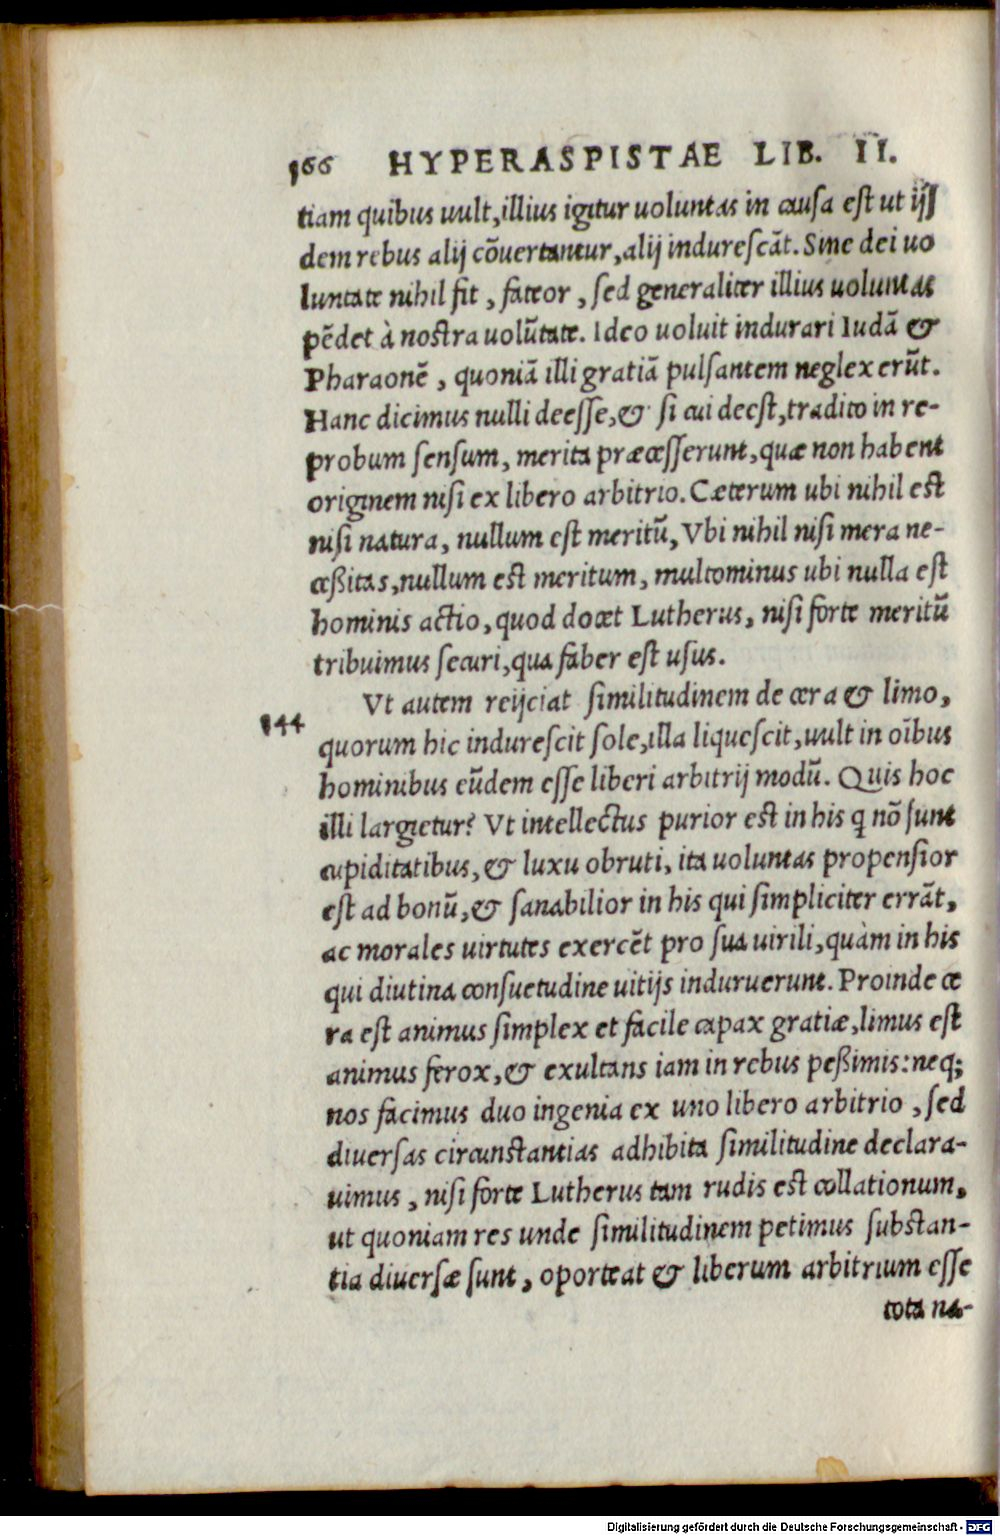 166 HYPERASPISTAE LIB. II.
tiam quibus uult, illius igitur uoluntas in causa est ut ijs
dem rebus alij cōuertantur, alij indurescāt. Sine dei uo
luntate nihil fit, fateor, sed generaliter illius uoluntas
pēdet à nostra uolūtate. Ideo uoluit indurari Iudā &
Pharaonē, quoniā illi gratiā pulsantem neglexerūt.
Hanc dicimus nulli deesse, & si cui deest, tradito in re-
probum sensum, merita præcesserunt, quæ non habent
originem nisi ex libero arbitrio. Cæterum ubi nihil est
nisi natura, nullum est meritū, Vbi nihil nisi mera ne-
cessitas, nullum est meritum, multominus ubi nulla est
hominis actio, quod docet Lutherus, nisi forte meritū
tribuimus securi, qua faber est usus.
144 Vt autem reijciat similitudinem de cera & limo,
quorum hic indurescit sole, illa liquescit, uult in oībus
hominibus eūdem esse liberi arbitrij modū. Quis hoc
illi largietur? Vt intellectus purior est in his q nō sunt
cupiditatibus, & luxu obruti, ita uoluntas propensior
est ad bonū, & sanabilior in his qui simpliciter errāt,
ac morales uirtutes exercēt pro sua uirili, quàm in his
qui diutina consuetudine uitijs induruerunt. Proinde ce
ra est animus simplex et facile capax gratiæ, limus est
animus ferox, & exultans iam in rebus pessimis: neq;
nos facimus duo ingenia ex uno libero arbitrio, sed
diuersas circunstantias adhibita similitudine declara-
uimus, nisi forte Lutherus tam rudis est collationum,
ut quoniam res unde similitudinem petimus substan-
tia diuersæ sunt, oporteat & liberum arbitrium esse
tota na-
Digitalisierung gefördert durch die Deutsche Forschungsgemeinschaft - DFG